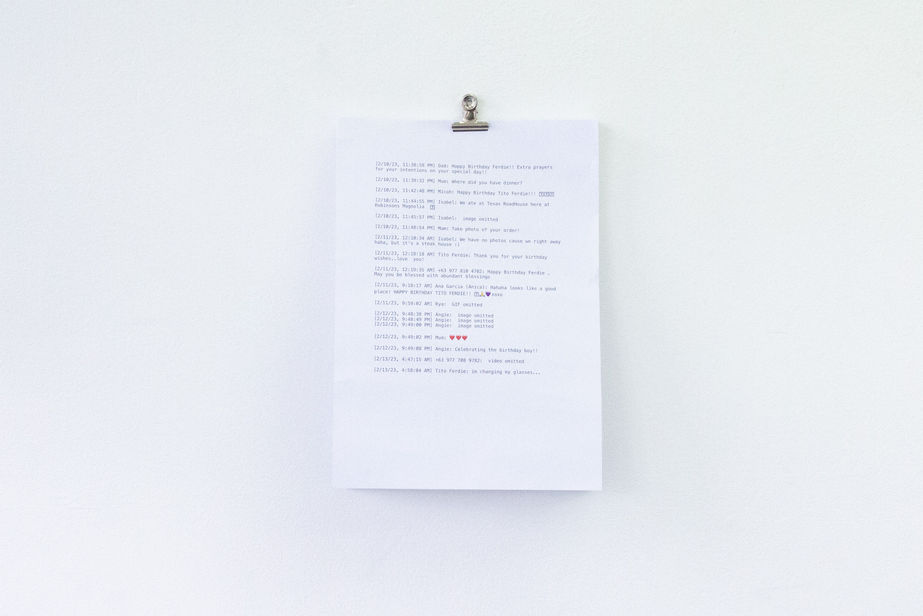 [2/10/23, 11:38:59 PM] Dad: Happy Birthday Ferdie!! Extra prayers
for your intentions on your special day!!
[2/10/23, 11:39:32 PM] Mum: Where did you have dinner?
[2/10/23, 11:42:48 PM] Micah: Happy Birthday Tito Ferdie!!!
[2/10/23, 11:44:55 PM] Isabel: We ate at Texas Roadhouse here at
Robinsons Magnolia
[2/10/23, 11:45:57 PM] Isabel: image omitted
[2/10/23, 11:48:54 PM] Mum: Take photo of your order!
[2/11/23, 12:10:34 AM] Isabel: We have no photos cause we right away
haha, but it's a steak house :)
[2/11/23, 12:19:18 AM] Tito Ferdie: Thank you for your birthday
wishes..love you!
[2/11/23, 12:19:35 AM] +63 977 810 4782: Happy Birthday Ferdie .
May you be blessed with abundant blessings
[2/11/23, 9:18:17 AM] Ana Garcia (Anica): Hahaha looks like a good
place! HAPPY BIRTHDAY TITO FERDIE!! 💜xoxo
[2/11/23, 9:59:02 AM] Rya: GIF omitted
[2/12/23, 9:48:38 PM] Angie: image omitted
[2/12/23, 9:48:49 PM] Angie: image omitted
[2/12/23, 9:49:00 PM] Angie: image omitted
[2/12/23, 9:49:02 PM] Mum: ❤️❤️❤️
[2/12/23, 9:49:08 PM] Angie: Celebrating the birthday boy!!
[2/13/23, 4:47:15 AM] +63 977 708 9782: video omitted
[2/13/23, 4:58:04 AM] Tito Ferdie: im changing my glasses...